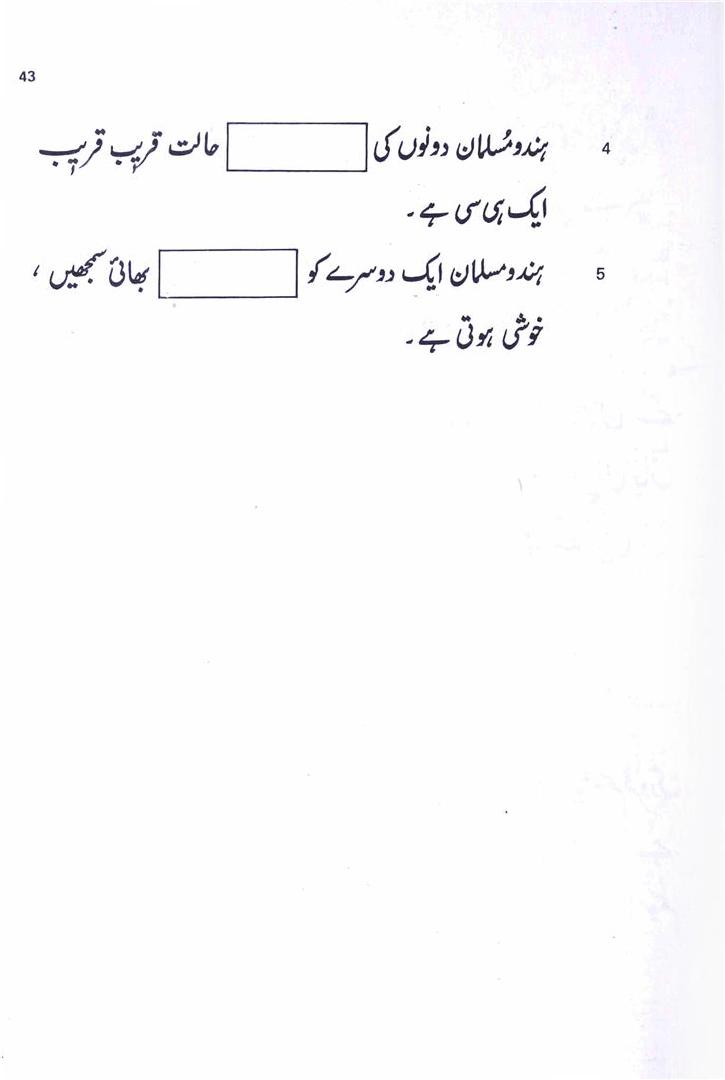 43
4 ہندو مُسلمان دونوں کی حالت قریب قریب
ایک ہی سی ہے۔
5 ہندو مسلمان ایک دوسرے کو بھائی سمجھیں ،
خوشی ہوتی ہے۔